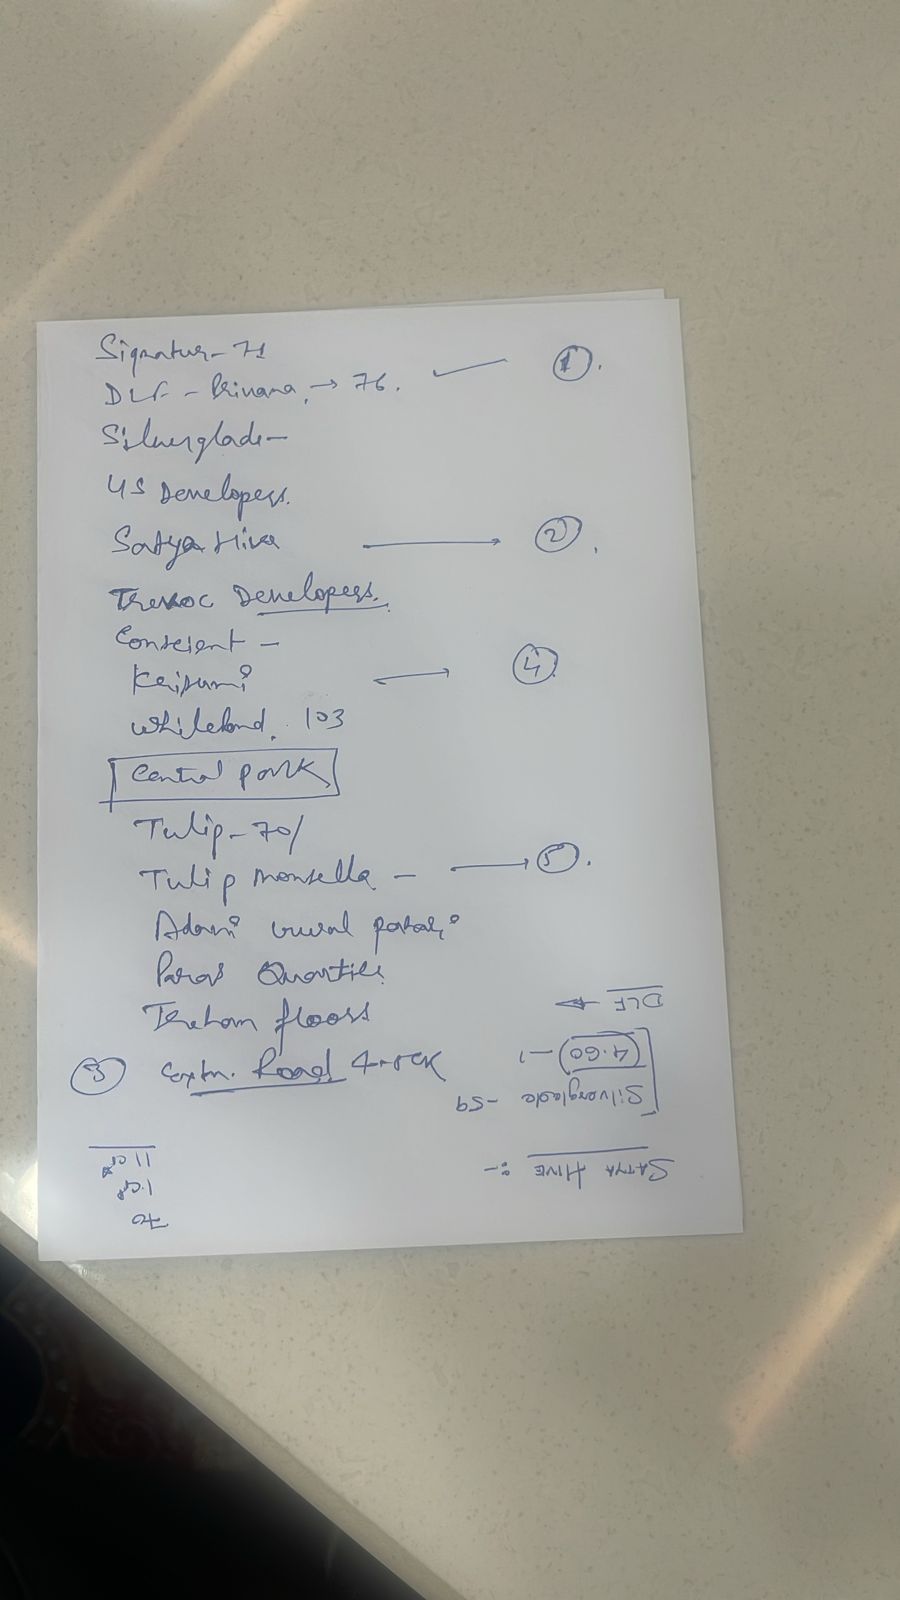 Signatur - 71
DLF - Privana, → 76. ①.
Silverglade -
4S Developers.
Satya Hive → ②.
Trevoc Developers.
Conscient -
Krisumi → ④
Whiteland. 103
Central park
Tulip - 70/
Tulip Monsella - → ⑤.
Adani
Paras Quartier
Trehan floors
Road
DLF →
(4.60) - 1
Silverglade - 59
SATYA HIVE :-
70
1 cr
11 cr